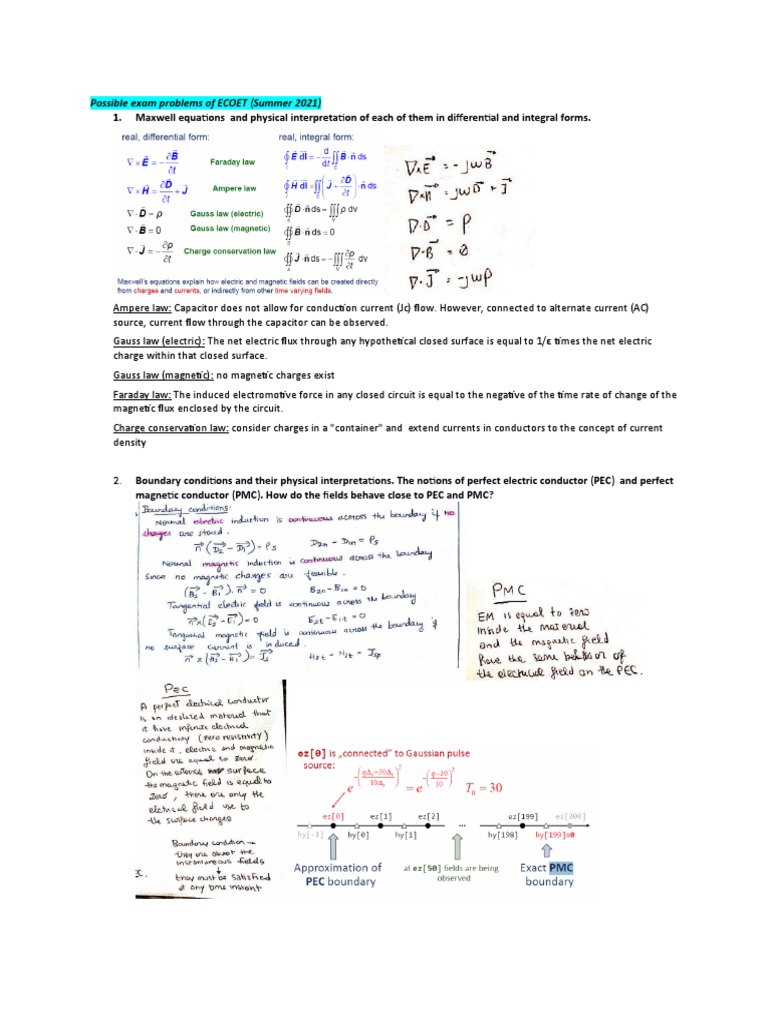 Possible exam problems of ECOET (Summer 2021)
1. Maxwell equations and physical interpretation of each of them in differential and integral forms.
real, differential form:
real, integral form:
∇ × E = − ∂B/∂t
Faraday law
∮ E dl = − d/dt ∬ B · n ds
∇ × H = ∂D/∂t + J
Ampere law
∮ H dl = ∬ ( J + ∂D/∂t ) · n ds
∇ · D = ρ
Gauss law (electric)
∯ D · n ds = ∭ ρ dv
∇ · B = 0
Gauss law (magnetic)
∯ B · n ds = 0
∇ · J = − ∂ρ/∂t
Charge conservation law
∯ J · n ds = − ∭ ∂ρ/∂t dv
Maxwell's equations explain how electric and magnetic fields can be created directly
from charges and currents, or indirectly from other time varying fields.
∇×E = −jwB
∇×H = jwD + J
∇·D = ρ
∇·B = 0
∇·J = −jwρ
Ampere law: Capacitor does not allow for conduction current (Jc) flow. However, connected to alternate current (AC)
source, current flow through the capacitor can be observed.
Gauss law (electric): The net electric flux through any hypothetical closed surface is equal to 1/ε times the net electric
charge within that closed surface.
Gauss law (magnetic): no magnetic charges exist
Faraday law: The induced electromotive force in any closed circuit is equal to the negative of the time rate of change of the
magnetic flux enclosed by the circuit.
Charge conservation law: consider charges in a "container" and extend currents in conductors to the concept of current
density
2. Boundary conditions and their physical interpretations. The notions of perfect electric conductor (PEC) and perfect
magnetic conductor (PMC). How do the fields behave close to PEC and PMC?
Boundary conditions:
Normal electric induction is continuous across the boundary if no
charges are stored.
n (D2 − D1) = ρs D2n − D1n = ρs
Normal magnetic induction is continuous across the boundary
since no magnetic charges are feasible.
(B2 − B1). n = 0 B2n − B1n = 0
Tangential electric field is continuous across the boundary
n×(E2 − E1) = 0 E2t − E1t = 0
Tangential magnetic field is continuous across the boundary if
no surface current is induced.
n × (H2 − H1) = Js H2t − H1t = Jsp
PMC
EM is equal to zero
inside the material
and the magnetic field
have the same behavior of
the electrical field on the PEC.
PEC
A perfect electrical conductor
is an idealized material that
it have infinite electrical
conductivity (zero resistivity)
inside it, electric and magnetic
field are equal to zero.
On the surface
the magnetic field is equal to
zero, there are only the
electrical field due to
the surface charges
Boundary condition →
they are about the
instantaneous fields
↓
they must be satisfied
at any time instant
ez[0] is „connected” to Gaussian pulse
source:
e^−((qΔt−30Δt)/(10Δt))² = e^−((q−30)/10)² T0 = 30
ez[0] ez[1] ez[2] ... ez[199] ez[200]
hy[-1] hy[0] hy[1] hy[198] hy[199]=0
Approximation of
PEC boundary
at ez[50] fields are being
observed
Exact PMC
boundary